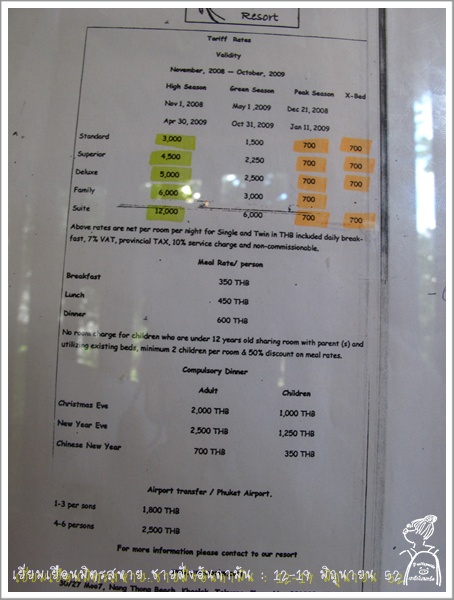 Resort
Tariff Rates
Validity
November, 2008 — October, 2009
High Season Green Season Peak Season X-Bed
Nov 1, 2008 May 1 ,2009 Dec 21, 2008
Apr 30, 2009 Oct 31, 2009 Jan 11, 2009
Standard 3,000 1,500 700 700
Superior 4,500 2,250 700 700
Deluxe 5,000 2,500 700 700
Family 6,000 3,000 700
Suite 12,000 6,000 700 700
Above rates are net per room per night for Single and Twin in THB included daily break-
fast, 7% VAT, provincial TAX, 10% service charge and non-commissionable.
Meal Rate/ person
Breakfast 350 THB
Lunch 450 THB
Dinner 600 THB
No room charge for children who are under 12 years old sharing room with parent (s) and
utilizing existing beds, minimum 2 children per room & 50% discount on meal rates.
Compulsory Dinner
Adult Children
Christmas Eve 2,000 THB 1,000 THB
New Year Eve 2,500 THB 1,250 THB
Chinese New Year 700 THB 350 THB
Airport transfer / Phuket Airport.
1-3 per sons 1,800 THB
4-6 persons 2,500 THB
For more information please contact to our resort
เยี่ยมเยือนมิตรสหาย ชายฝั่งอันดามัน : 12-19 มิถุนายน 52
56/27 Moo7, Nang Thong Beach, Khaolak,